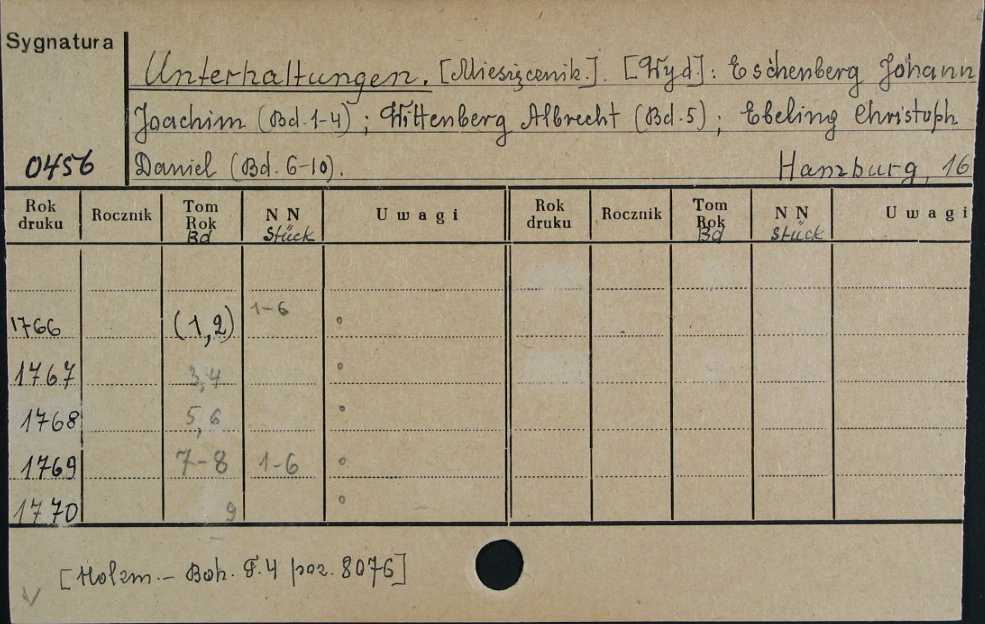 Sygnatura
Unterhaltungen. [Miesięcznik]. [Wyd]: Eschenberg Johann
Joachim (Bd. 1-4); Wittenberg Albrecht (Bd. 5); Ebeling Christoph
0456 Daniel (Bd. 6-10). Hamburg, 16
Rok druku Rocznik Tom Rok Bd NN Stück Uwagi Rok druku Rocznik Tom Rok Bd NN Stück Uwagi
1766 (1,2) 1-6 °
1767 3,4 °
1768 5,6 °
1769 7-8 1-6 °
1770 9 °
[Holzm.- Boh. T.4 poz. 8076]